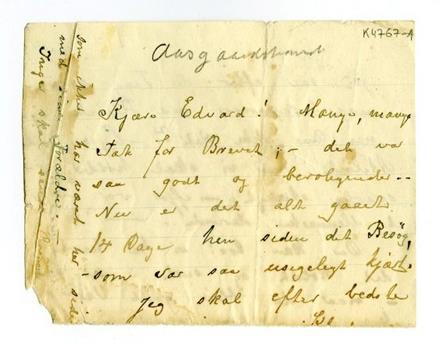 K4767-A
Aasgaardstrand
Kjære Edvard! Mange, mange
Tak for Brevet; – det var
saa godt og beroligende –
Nu er det alt gaaet
14 Dage hen siden det Besög,
som var saa usigeligt kjært.
Jeg skal efter bedste
som
har været her siden
med Forældre.
Inga skal